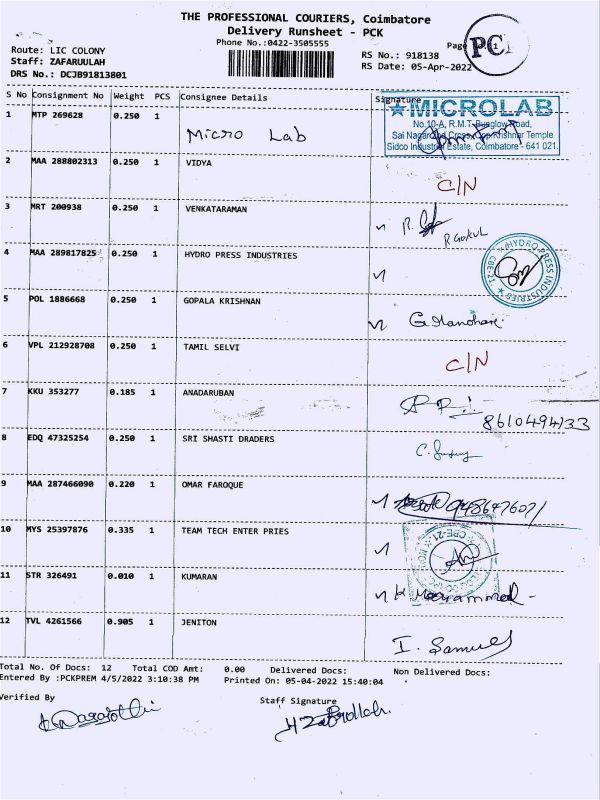 THE PROFESSIONAL COURIERS, Coimbatore
Delivery Runsheet - PCK
Phone No.:0422-3505555
Page
PC
Route: LIC COLONY
Staff: ZAFARUULAH
DRS No.: DCJB91813801
RS No.: 918138
RS Date: 05-Apr-2022
S No Consignment No Weight PCS Consignee Details Signature
1 MTP 269628 0.250 1 Micro Lab
MICROLAB
No.10-A, R.M.T. Bunglow Road,
Sai Nagar Temple
Sidco Industrial Estate, Coimbatore - 641 021.
2 MAA 288802313 0.250 1 VIDYA C/N
3 MRT 200938 0.250 1 VENKATARAMAN
R GOKUL
4 MAA 289817825 0.250 1 HYDRO PRESS INDUSTRIES
HYDRO PRESS INDUSTRIES CBE-21
5 POL 1886668 0.250 1 GOPALA KRISHNAN
6 VPL 212928708 0.250 1 TAMIL SELVI C/N
7 KKU 353277 0.185 1 ANADARUBAN
8610494133
8 EDQ 47325254 0.250 1 SRI SHASTI DRADERS
9 MAA 287466090 0.220 1 OMAR FAROQUE
10 MYS 25397876 0.335 1 TEAM TECH ENTER PRIES
11 STR 326491 0.010 1 KUMARAN
12 TVL 4261566 0.905 1 JENITON I. Samuel
Total No. Of Docs: 12 Total COD Amt: 0.00 Delivered Docs: Non Delivered Docs:
Entered By :PCKPREM 4/5/2022 3:10:38 PM Printed On: 05-04-2022 15:40:04
Verified By
Staff Signature